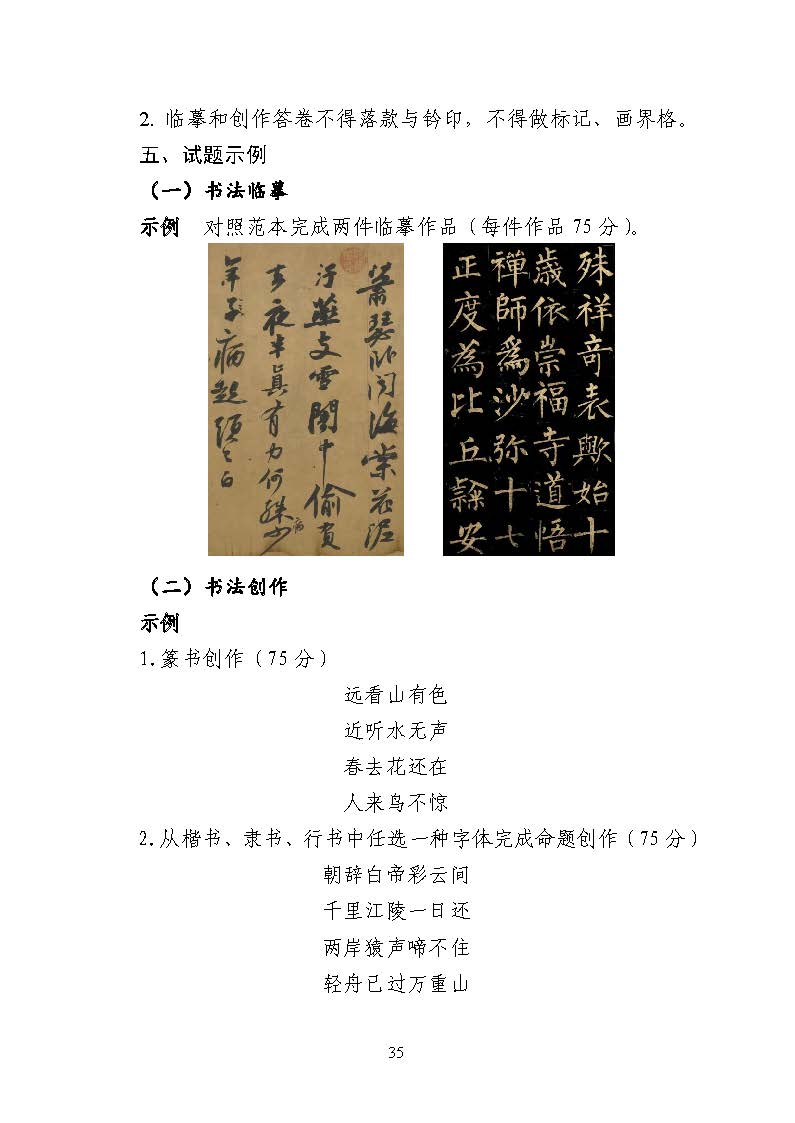 2. 临摹和创作答卷不得落款与钤印，不得做标记、画界格。
五、试题示例
（一）书法临摹
示例 对照范本完成两件临摹作品（每件作品 75 分）。
蕭瑟卧聞海棠花泥
汙燕支雪闇中偷負
去夜半真有力何殊少
病
年子病起頭已白
殊祥竒表歟始十
歲依崇福寺道悟
禪師爲沙弥十七
正度為比丘隷安
（二）书法创作
示例
1.篆书创作（75 分）
远看山有色
近听水无声
春去花还在
人来鸟不惊
2.从楷书、隶书、行书中任选一种字体完成命题创作（75 分）
朝辞白帝彩云间
千里江陵一日还
两岸猿声啼不住
轻舟已过万重山
35